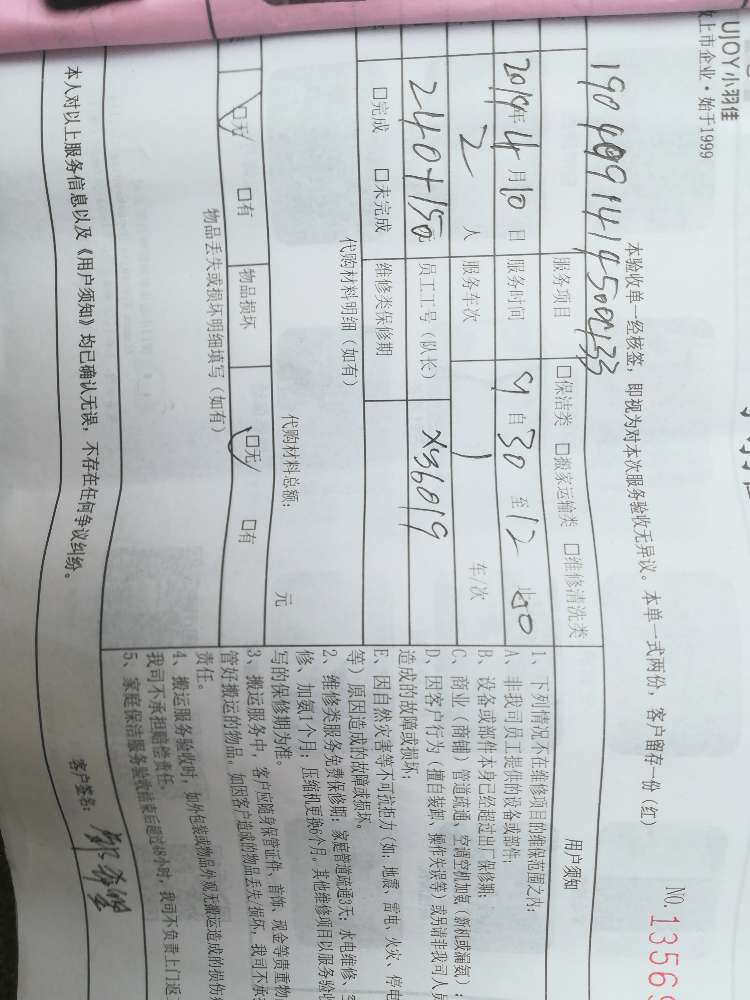 UJOY小羽佳
上市企业·始于1999
NO.13569
本验收单一经核签，即视为对本次服务验收无异议。本单一式两份，客户留存一份（红）
服务项目 □保洁类 □搬家运输类 □维修清洗类
2019年4月10日 服务时间 9自30至12
2人 服务车次 1车/次
240+150元 员工工号（队长） X36019
□完成 □未完成 维修类保修期
代购材料明细（如有）
代购材料总额： 元
□无 □有 物品损坏 □无 □有
物品丢失或损坏明细填写（如有）
用户须知
1、下列情况不在维修项目的维保范围之内：
A、非我司员工提供的设备或部件；
B、设备或部件本身已经超过出厂保修期；
C、商业（商铺）管道疏通、空调空机加氨（新机或漏氨）；
D、因客户行为（擅自装卸、操作失误等）或另请非我司人员
造成的故障或损坏；
E、因自然灾害等不可抗拒力（如：地震、雷电、火灾、停电
等）原因造成的故障或损坏。
2、维修类服务免费保修期：家庭管道疏通3天；水电维修、
修、加氨1个月；压缩机更换6个月。其他维修项目以服务验收
写的保修期为准。
3、搬运服务中，客户应随身保管证件、首饰、现金等贵重物
管好搬运的物品。如因客户造成的物品丢失/损坏，我司不承
责任。
4、搬运服务验收时，如外包装或物品外观无搬运造成的损伤
我司不承担赔偿责任。
5、家庭保洁服务验收结束后超过48小时，我司不负责上门返
本人对以上服务信息以及《用户须知》均已确认无误，不存在任何争议纠纷。
客户签名：